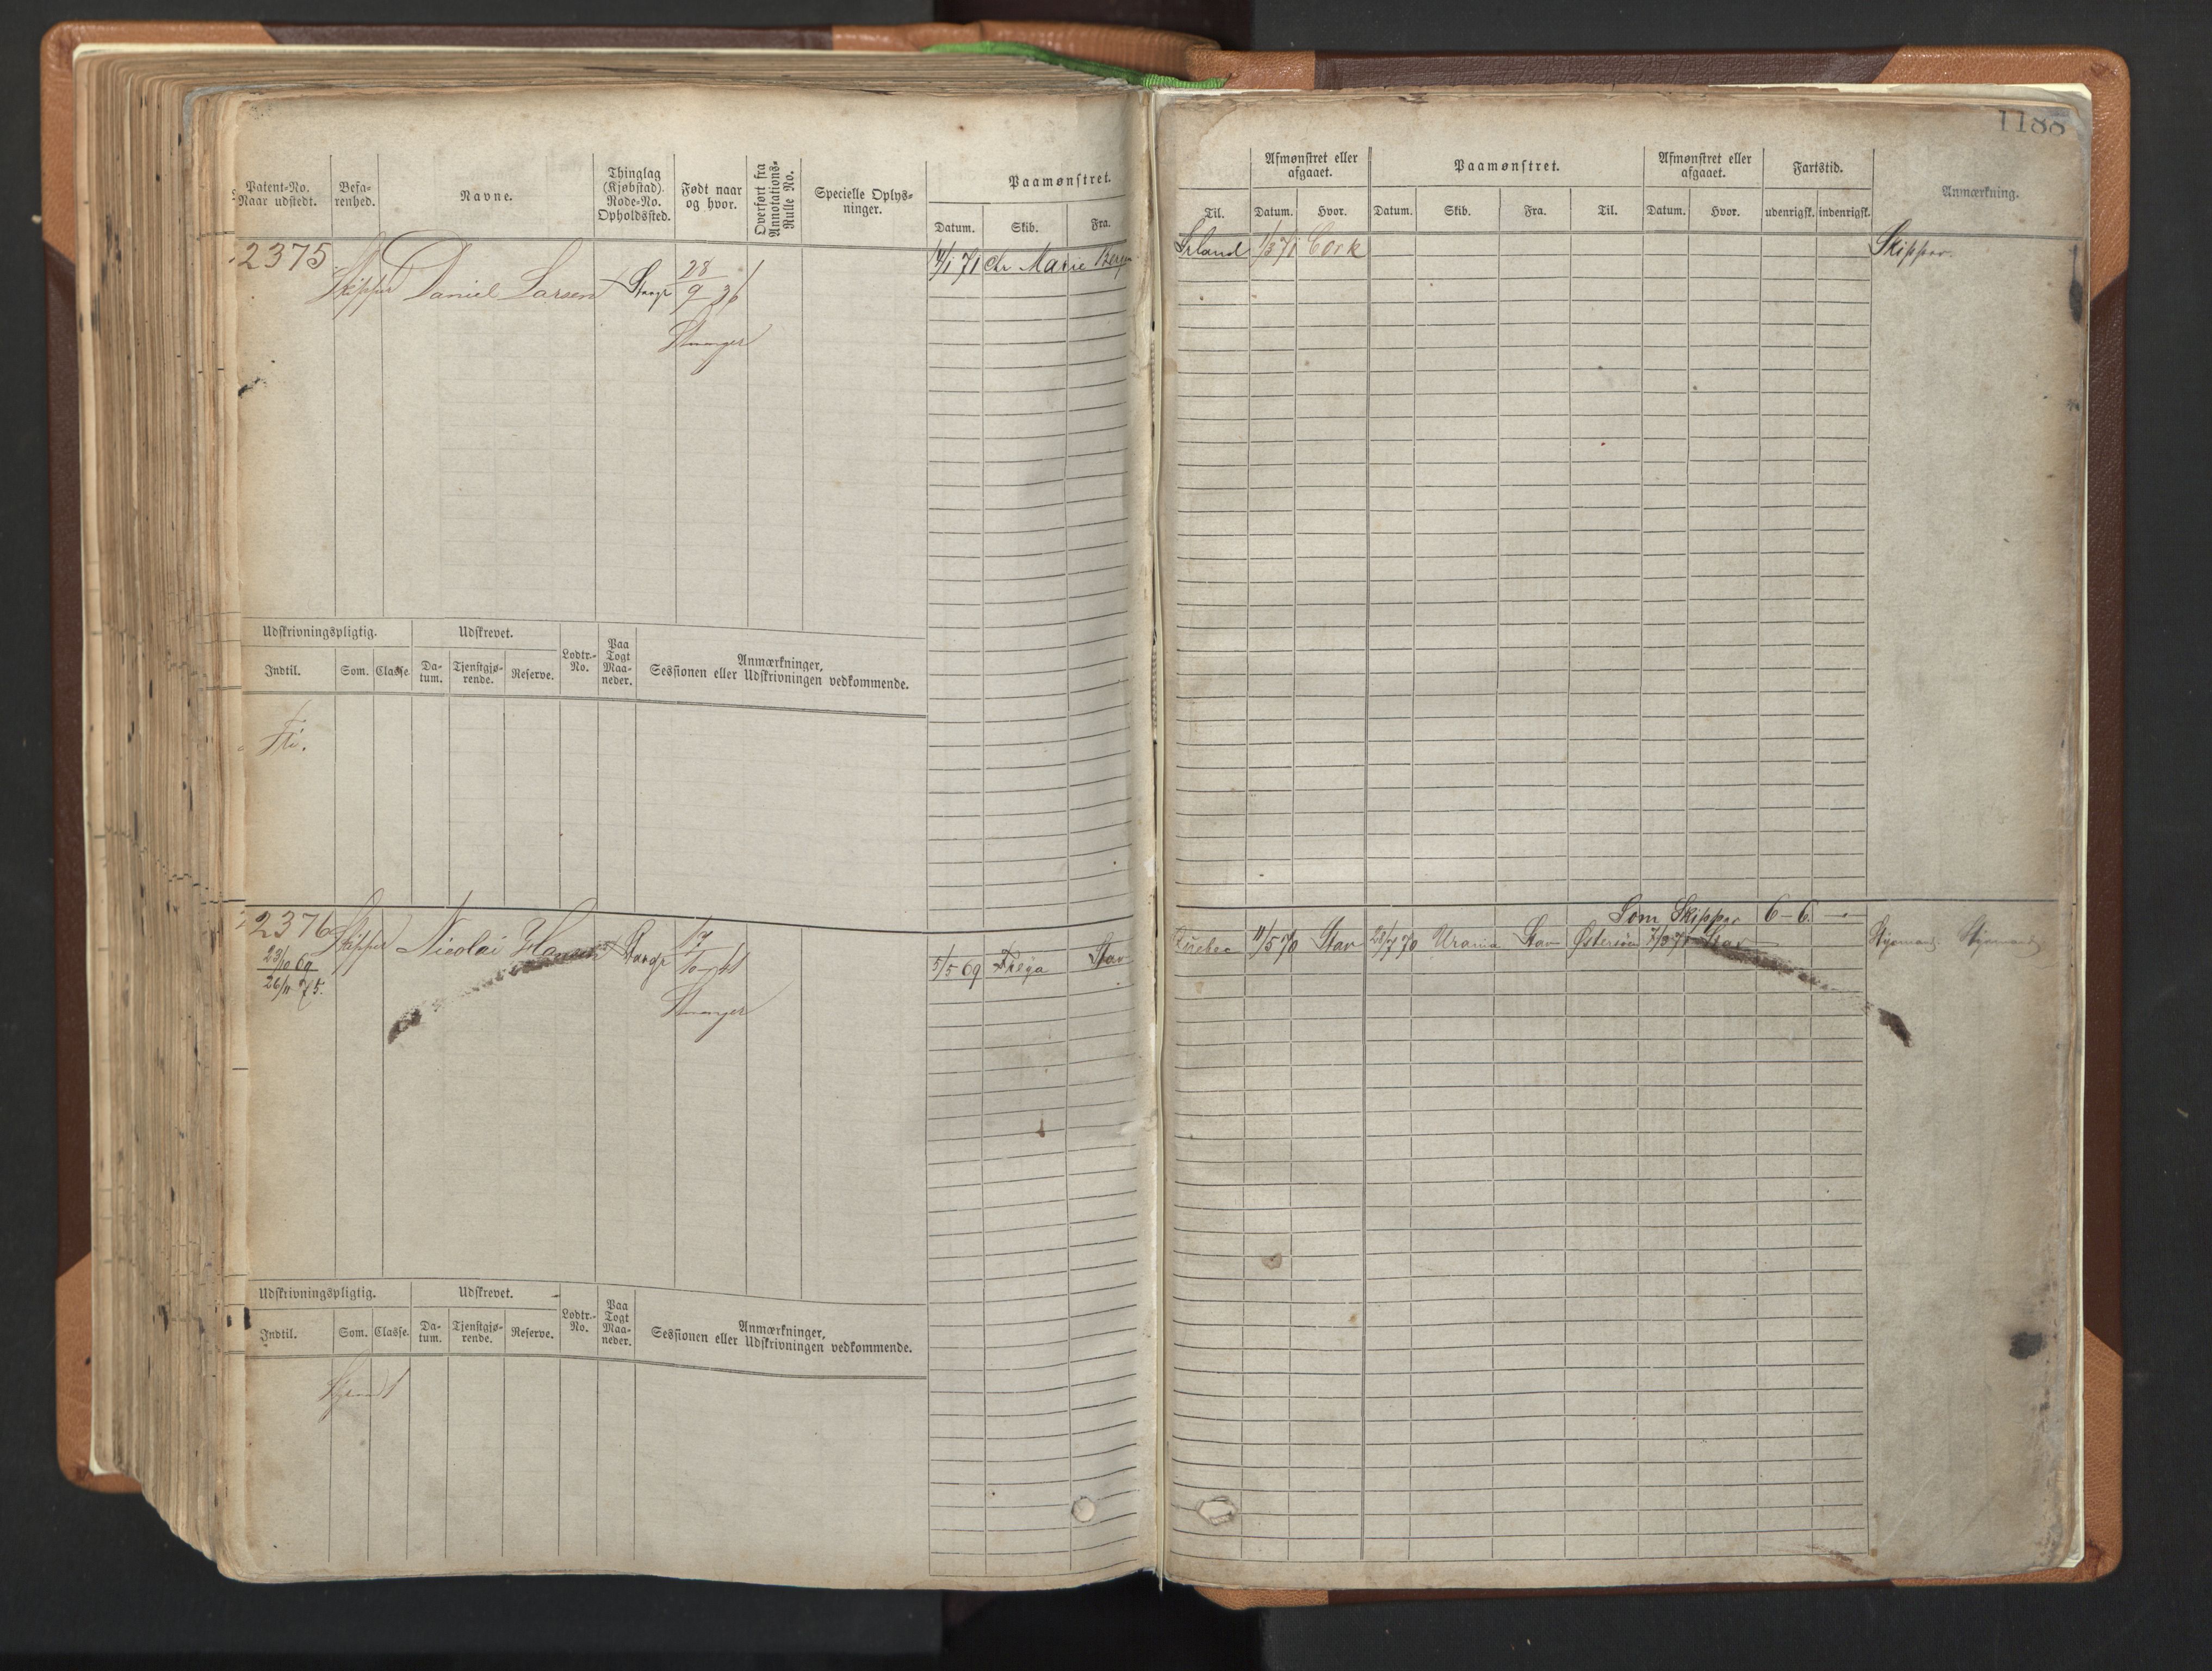 1188
Patent-No. Naar udstedt.
Befa-renhed.
Navne.
Thinglag (Kjøbstad). Rode-No. Opholdssted.
Født naar og hvor.
Overført fra Annotations-Rulle No.
Specielle Oplys-ninger.
Paamønstret.
Datum. Skib. Fra.
Til.
Afmønstret eller afgaaet.
Datum. Hvor.
Paamønstret.
Datum. Skib. Fra. Til.
Afmønstret eller afgaaet.
Datum. Hvor.
Fartstid.
udenrigsk. indenrigsk.
Anmærkning.
2375 Skipper Daniel Larsen 28/9 36
Stavanger
71 Chr Marie Bergen
Irland 1/3 71 Cork Skipper.
Udskrivningspligtig. Udskrevet. Lodtr.-No. Paa Togt Maa-neder. Anmærkninger, Sessionen eller Udskrivningen vedkommende.
Indtil. Som. Classe. Da-tum. Tjenstgjø-rende. Reserve.
Fri.
2376 Skipper Nicolai Hansen 17/10 41
23/10 69
26/11 75.
Stavanger
5/5 69 Freya Stav
Som Skipper 6-6. -
Quebec 11/5 70 Stav 28/7 70 Urania Stav Østersøen 7/9 71 Stav Styrmand. Styrmand
Udskrivningspligtig. Udskrevet. Lodtr.-No. Paa Togt Maa-neder. Anmærkninger, Sessionen eller Udskrivningen vedkommende.
Indtil. Som. Classe. Da-tum. Tjenstgjø-rende. Reserve.